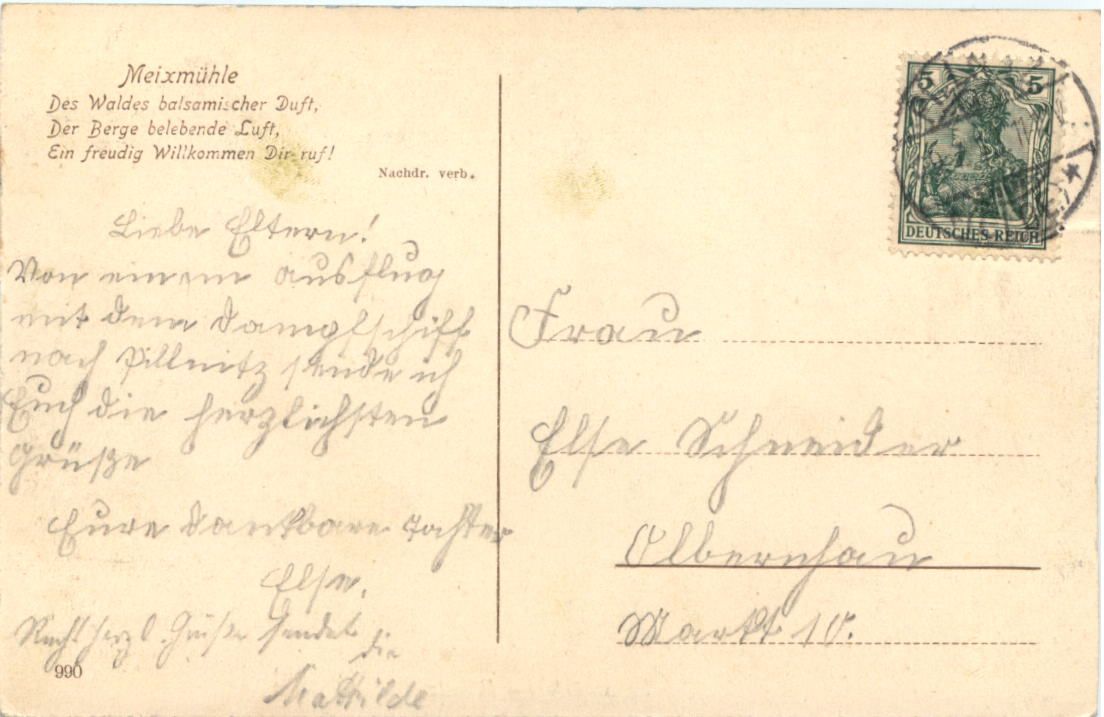 Meixmühle
Des Waldes balsamischer Duft,
Der Berge belebende Luft,
Ein freudig Willkommen Dir ruf!
Nachdr. verb.
Liebe Eltern!
Von einem ausflug
mit dem Dampfschiff
nach Pillnitz sende ich
Euch die herzlichsten
Grüße
Eure dankbare Tochter
Else.
Recht herzl. Grüße sendet
die
Mathilde
990
5 5
DEUTSCHES REICH
Frau
Else Schneider
Olbernhau
Markt 10.